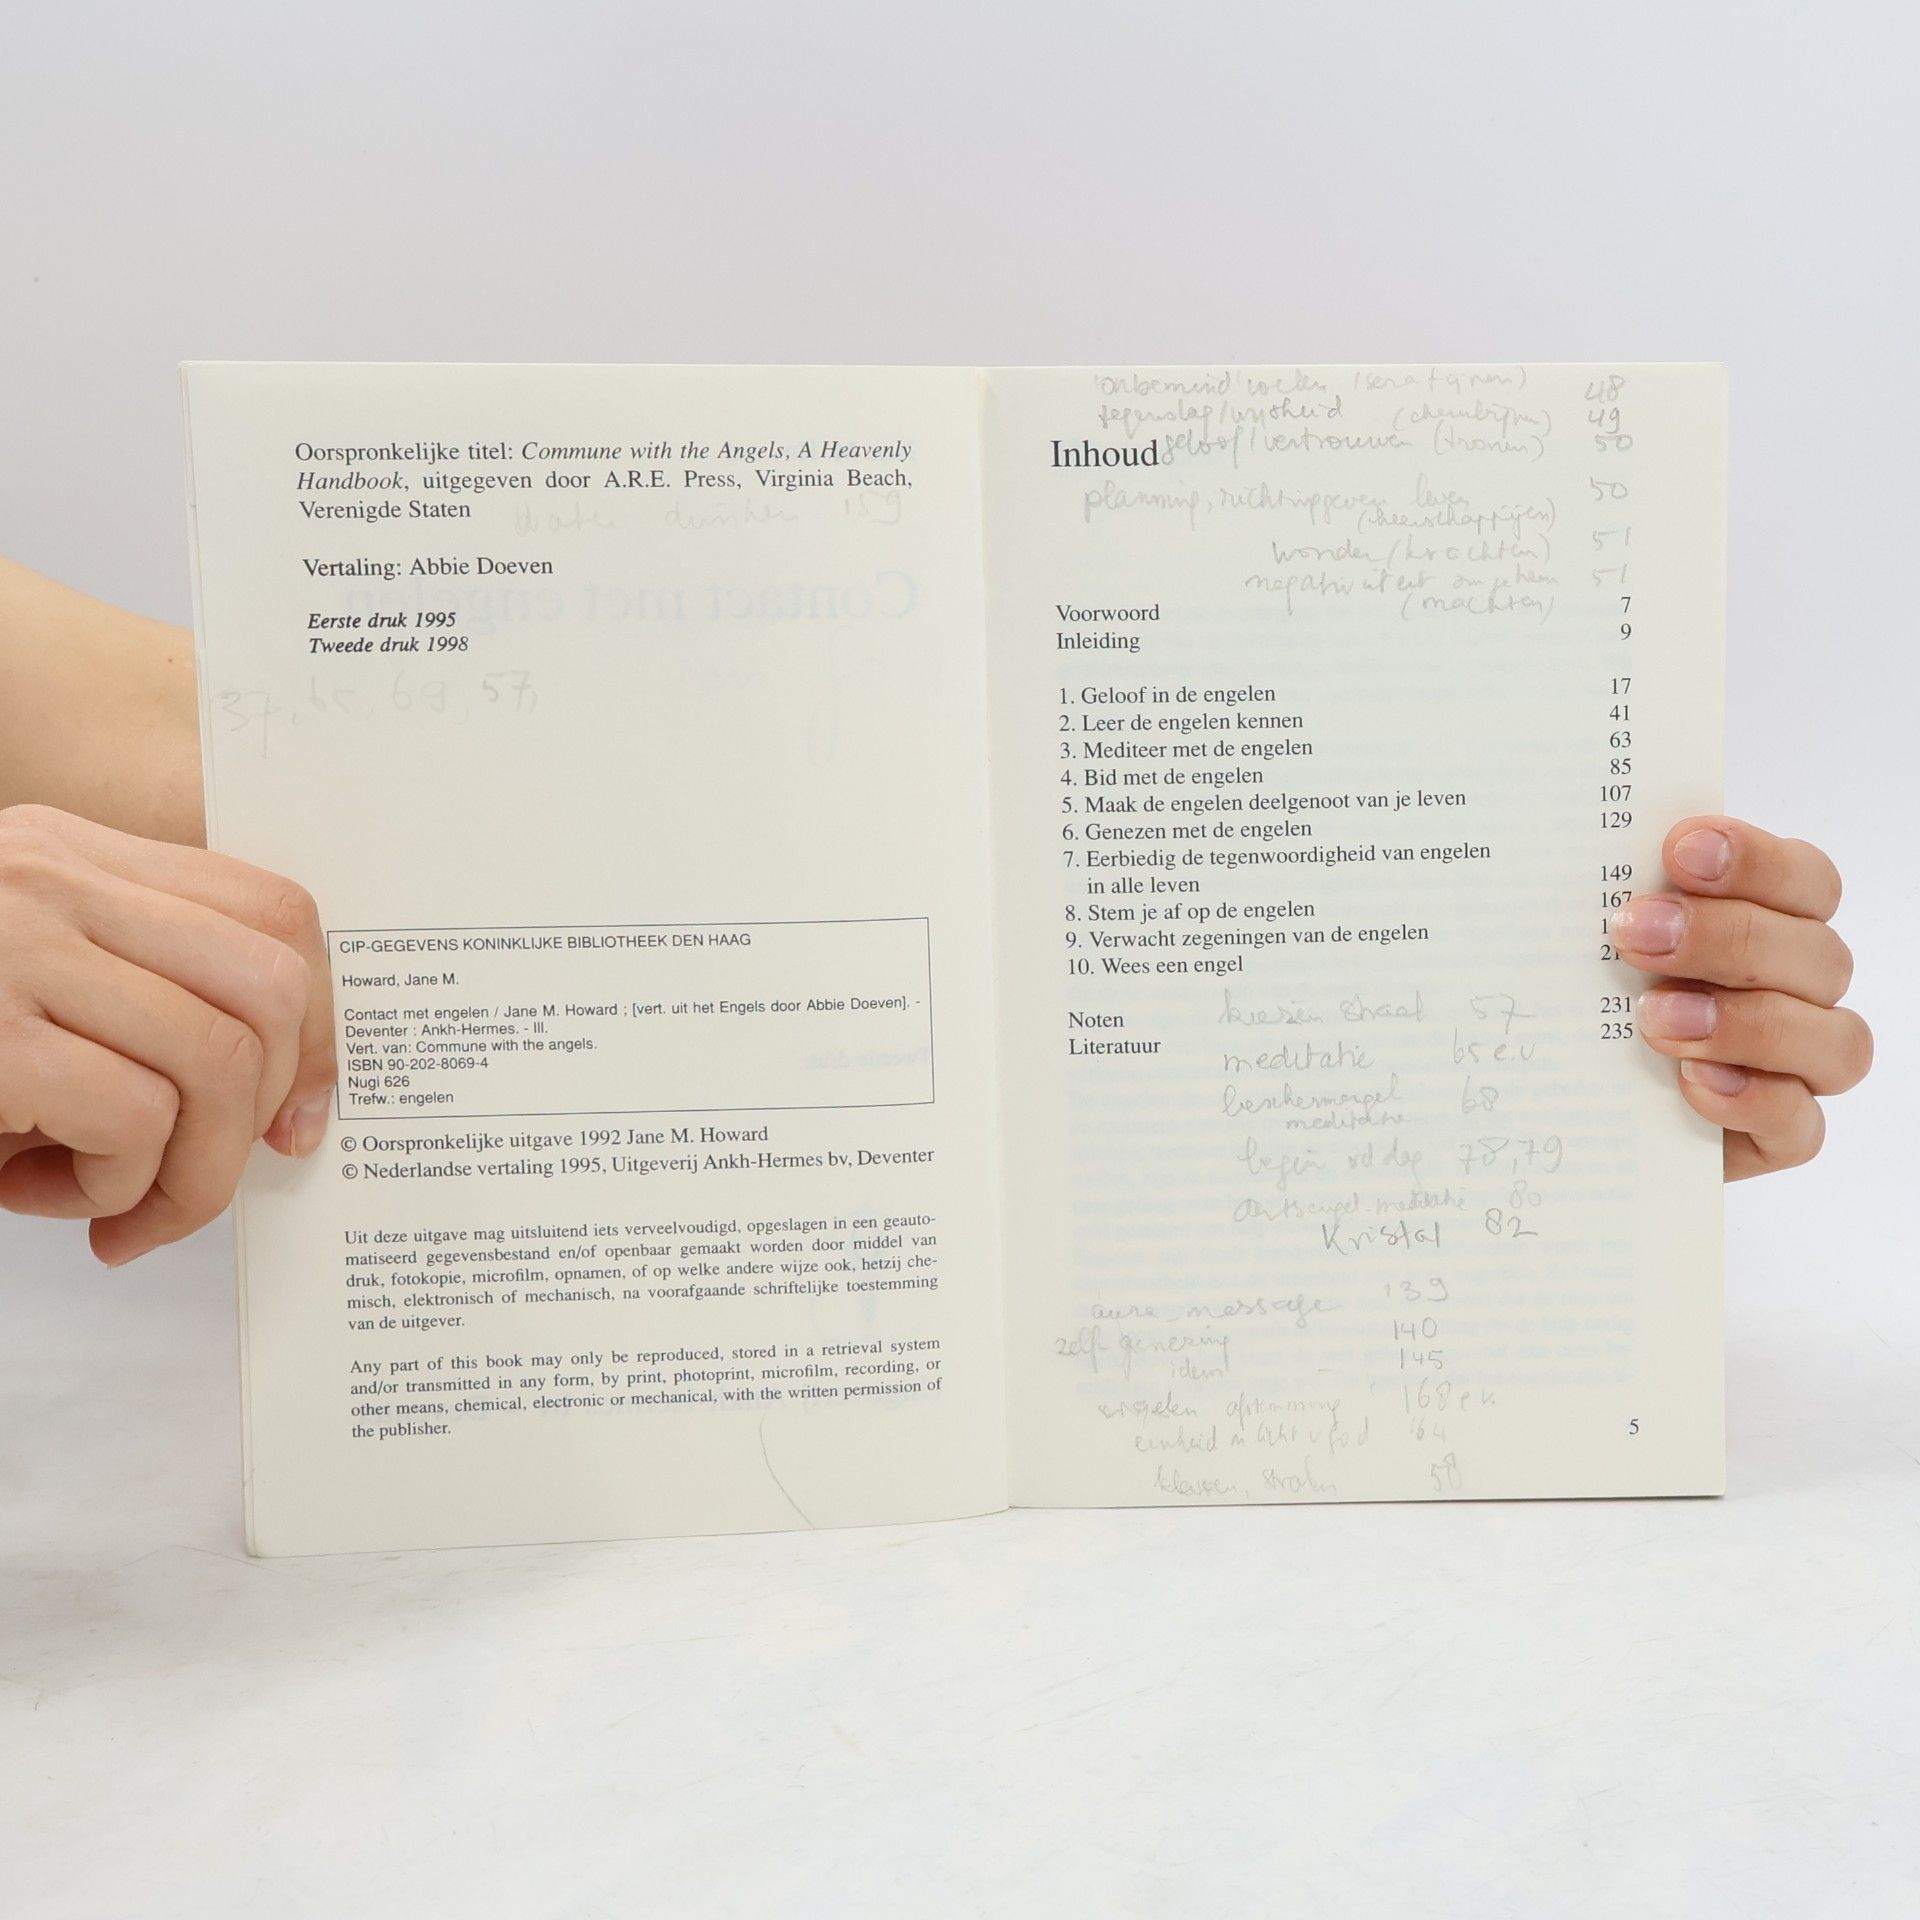 Oorspronkelijke titel: Commune with the Angels, A Heavenly
Handbook, uitgegeven door A.R.E. Press, Virginia Beach,
Verenigde Staten
water drinken 159
Vertaling: Abbie Doeven
Eerste druk 1995
Tweede druk 1998
37, 65, 69, 57,
CIP-GEGEVENS KONINKLIJKE BIBLIOTHEEK DEN HAAG
Howard, Jane M.
Contact met engelen / Jane M. Howard ; [vert. uit het Engels door Abbie Doeven]. -
Deventer : Ankh-Hermes. - III.
Vert. van: Commune with the angels.
ISBN 90-202-8069-4
Nugi 626
Trefw.: engelen
© Oorspronkelijke uitgave 1992 Jane M. Howard
© Nederlandse vertaling 1995, Uitgeverij Ankh-Hermes bv, Deventer
Uit deze uitgave mag uitsluitend iets verveelvoudigd, opgeslagen in een geauto-
matiseerd gegevensbestand en/of openbaar gemaakt worden door middel van
druk, fotokopie, microfilm, opnamen, of op welke andere wijze ook, hetzij che-
misch, elektronisch of mechanisch, na voorafgaande schriftelijke toestemming
van de uitgever.
Any part of this book may only be reproduced, stored in a retrieval system
and/or transmitted in any form, by print, photoprint, microfilm, recording, or
other means, chemical, electronic or mechanical, with the written permission of
the publisher.
'onbemind' voelen (serafijnen) 48
tegenslag/wijsheid (cherubijnen) 49
Inhoud
geloof/vertrouwen (tronen) 50
planning, richtinggeven leven 50
(heerschappijen)
wonder (krachten) 51
negativiteit 51
(machten)
Voorwoord 7
Inleiding 9
1. Geloof in de engelen 17
2. Leer de engelen kennen 41
3. Mediteer met de engelen 63
4. Bid met de engelen 85
5. Maak de engelen deelgenoot van je leven 107
6. Genezen met de engelen 129
7. Eerbiedig de tegenwoordigheid van engelen
in alle leven 149
8. Stem je af op de engelen 167
9. Verwacht zegeningen van de engelen
10. Wees een engel
Noten 231
Literatuur 235
kiezen straal 57
meditatie 65 e.v
beschermengel 68
meditatie
begin vd dag 78, 79
aartsengel-meditatie 80
Kristal 82
aura-massage 139
zelf-genezing 140
idem 145
engelen afstemming 168 e.v.
eenheid m licht v God 164
kleuren, stralen 58
5